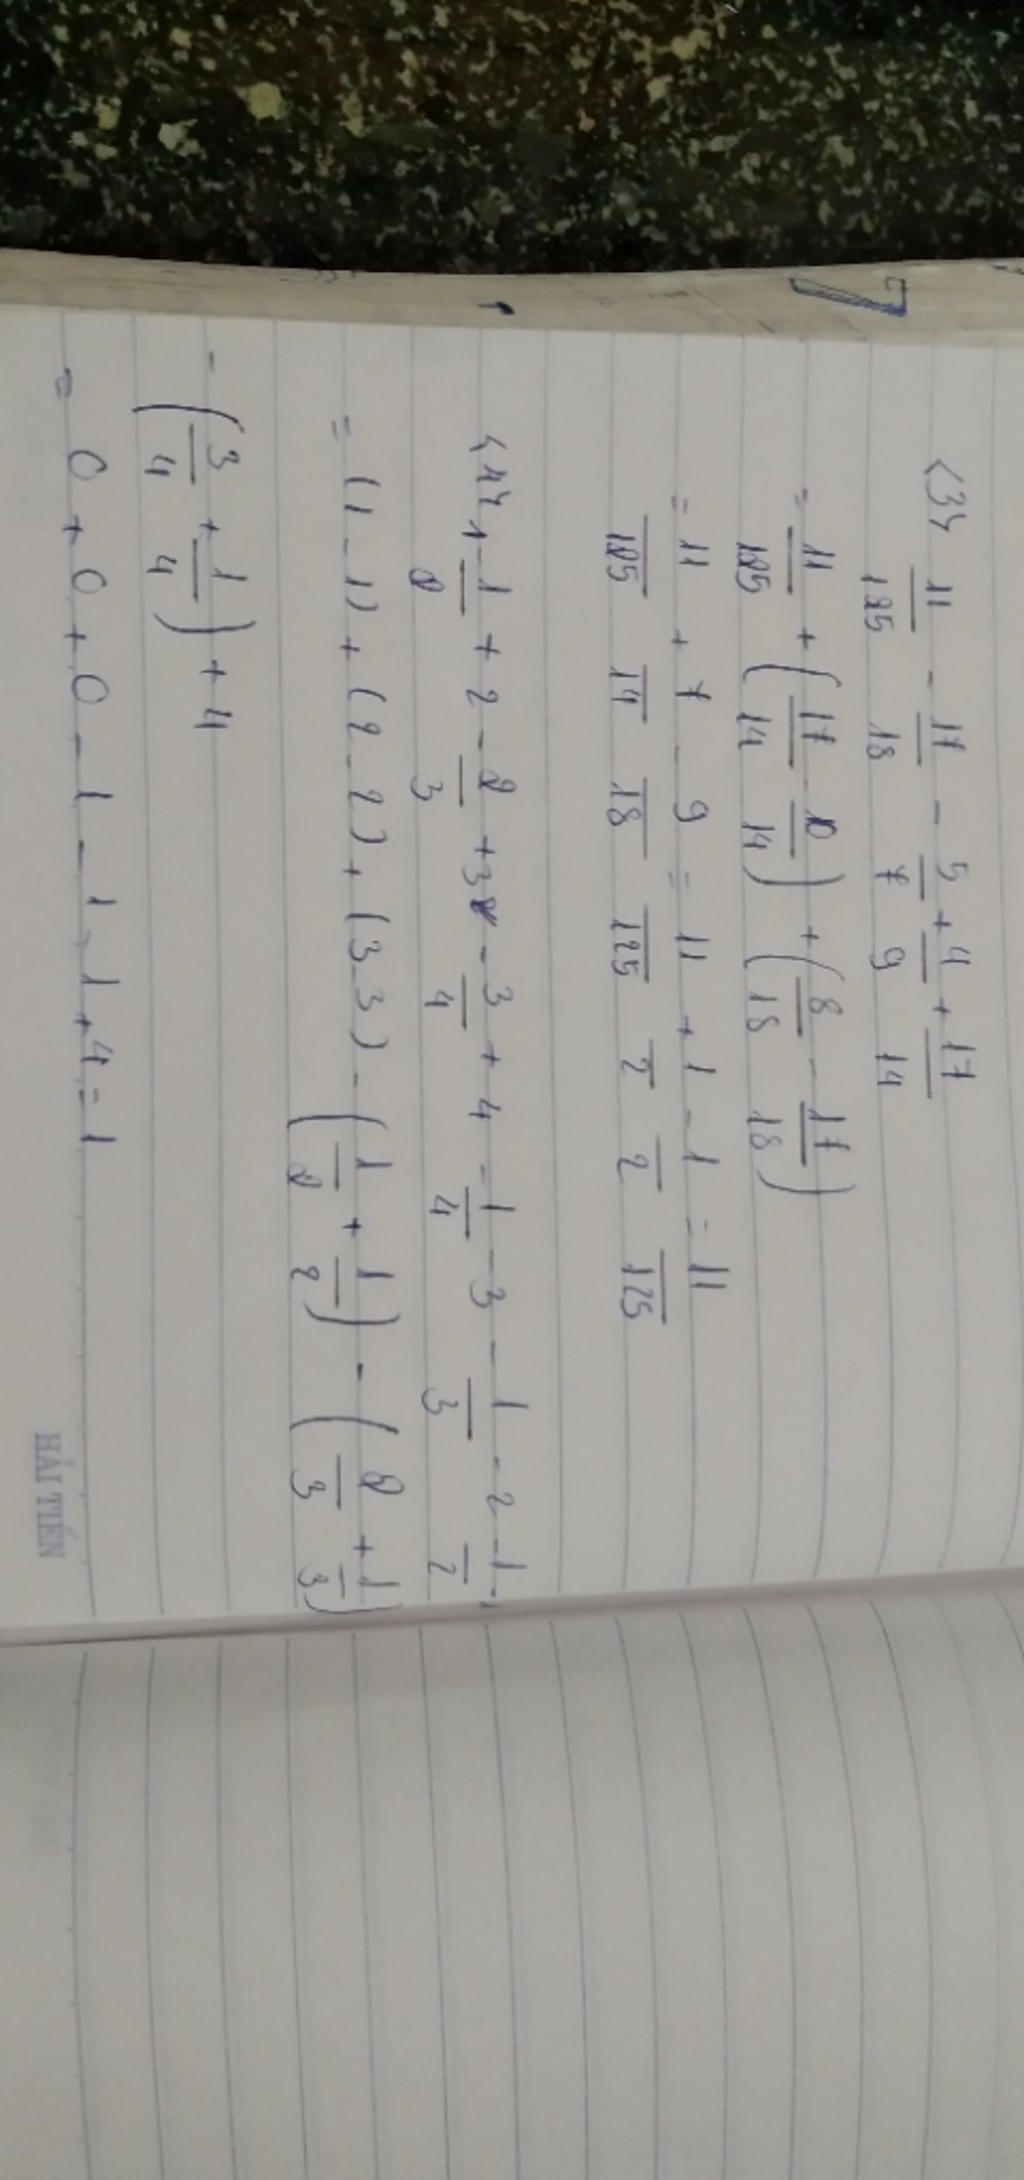 (3) 11/125 - 17/18 - 5/7 + 4/9 + 17/14
= 11/125 + (17/14 - 10/14) + (8/18 - 17/18)
= 11/125 + 7/14 - 9/18 = 11/125 + 1/2 - 1/2 = 11/125
1 - 1/2 + 2 - 2/3 + 3 - 3/4 + 4 - 1/4 - 3 - 1/3 - 2 - 1/2 - 1
= (1 - 1) + (2 - 2) + (3 - 3) - (1/2 + 1/2) - (2/3 + 1/3)
- (3/4 + 1/4) + 4
= 0 + 0 + 0 - 1 - 1 - 1 + 4 = 1
HẢI TIẾN